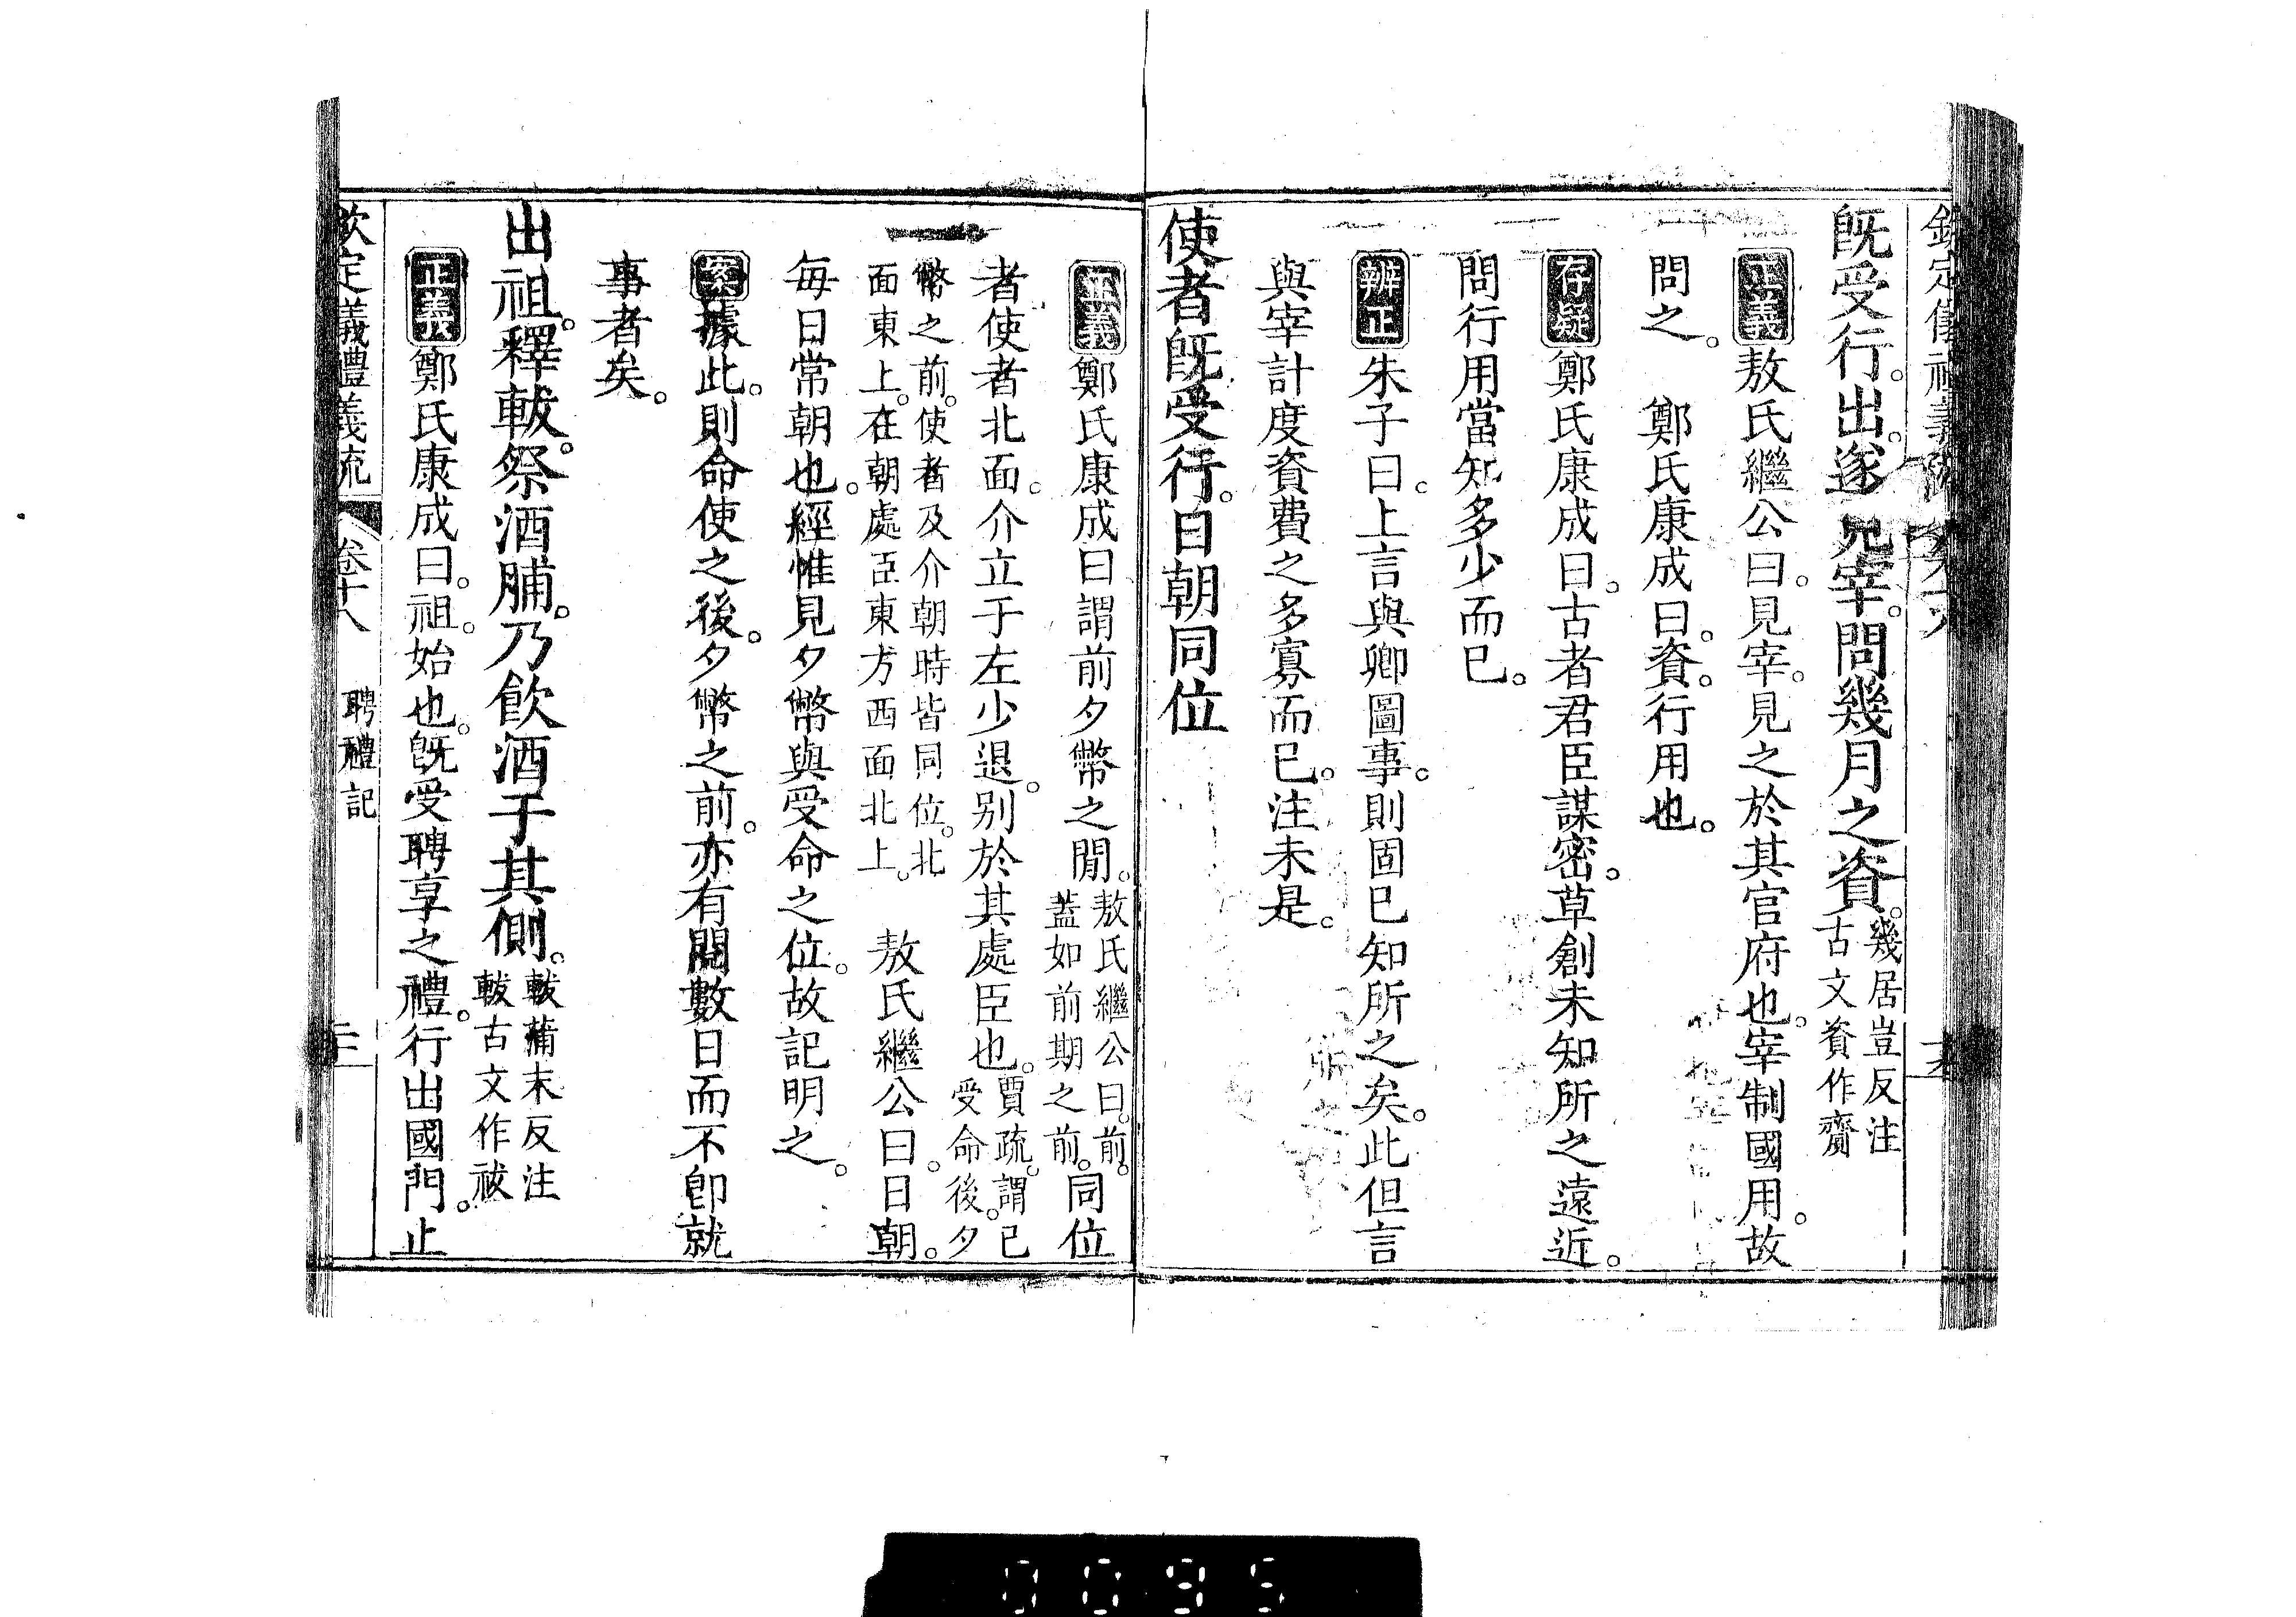 旣受行。出。遂見宰。問幾月之資。幾居豈反注
古文資作齎
正義敖氏繼公曰。見宰。見之於其官府也。宰制國用。故
問之。 鄭氏康成曰。資。行用也。
存疑鄭氏康成曰。古者君臣謀密。草創未知所之遠近。
問行用當知多少而已。
辨正朱子曰。上言與卿圖事。則固已知所之矣。此但言
與宰計度資費之多寡而已。注未是。
使者旣受行。日朝同位
正義鄭氏康成曰謂前夕幣之閒。敖氏繼公曰。前。
蓋如前期之前。同位
者使者北面。介立于左少退。别於其處臣也。賈疏。謂已
受命後。夕
幣之前。使者及介朝時皆同位。北
面東上。在朝處臣東方西面北上。 敖氏繼公曰。日朝。
每日常朝也。經惟見夕幣與受命之位。故記明之。
案據此。則命使之後。夕幣之前。亦有閱數日而不卽就
事者矣。
出祖。釋軷。祭酒脯。乃飲酒于其側。軷蒲末反注
軷古文作祓
正義鄭氏康成曰。祖。始也。旣受聘享之禮。行出國門。止
欽定義禮義疏 卷十八 聘禮記
0095